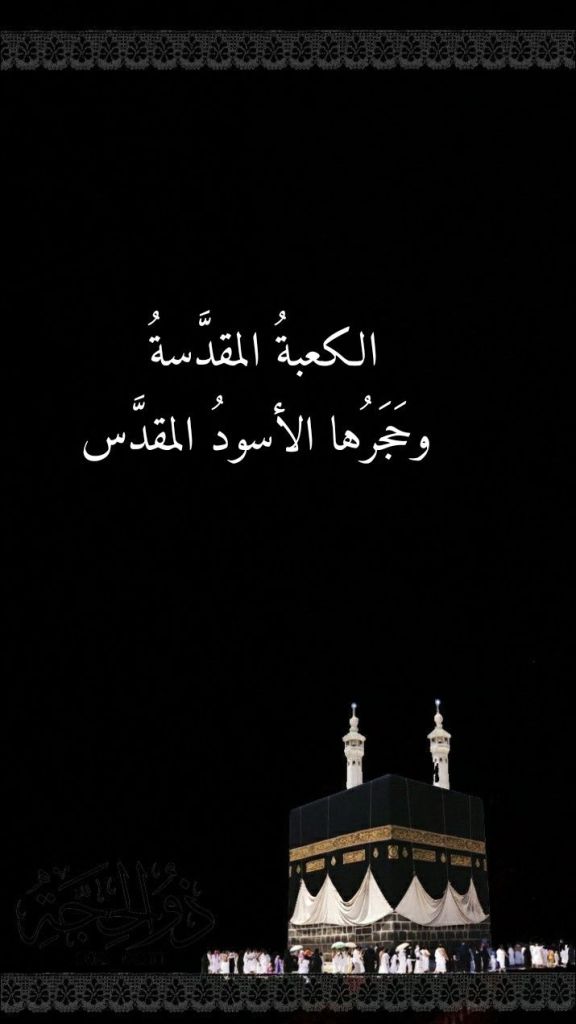 الكعبةُ المقدَّسةُ
وحَجَرُها الأسودُ المقدَّس
ذُو الحِجَّةِ